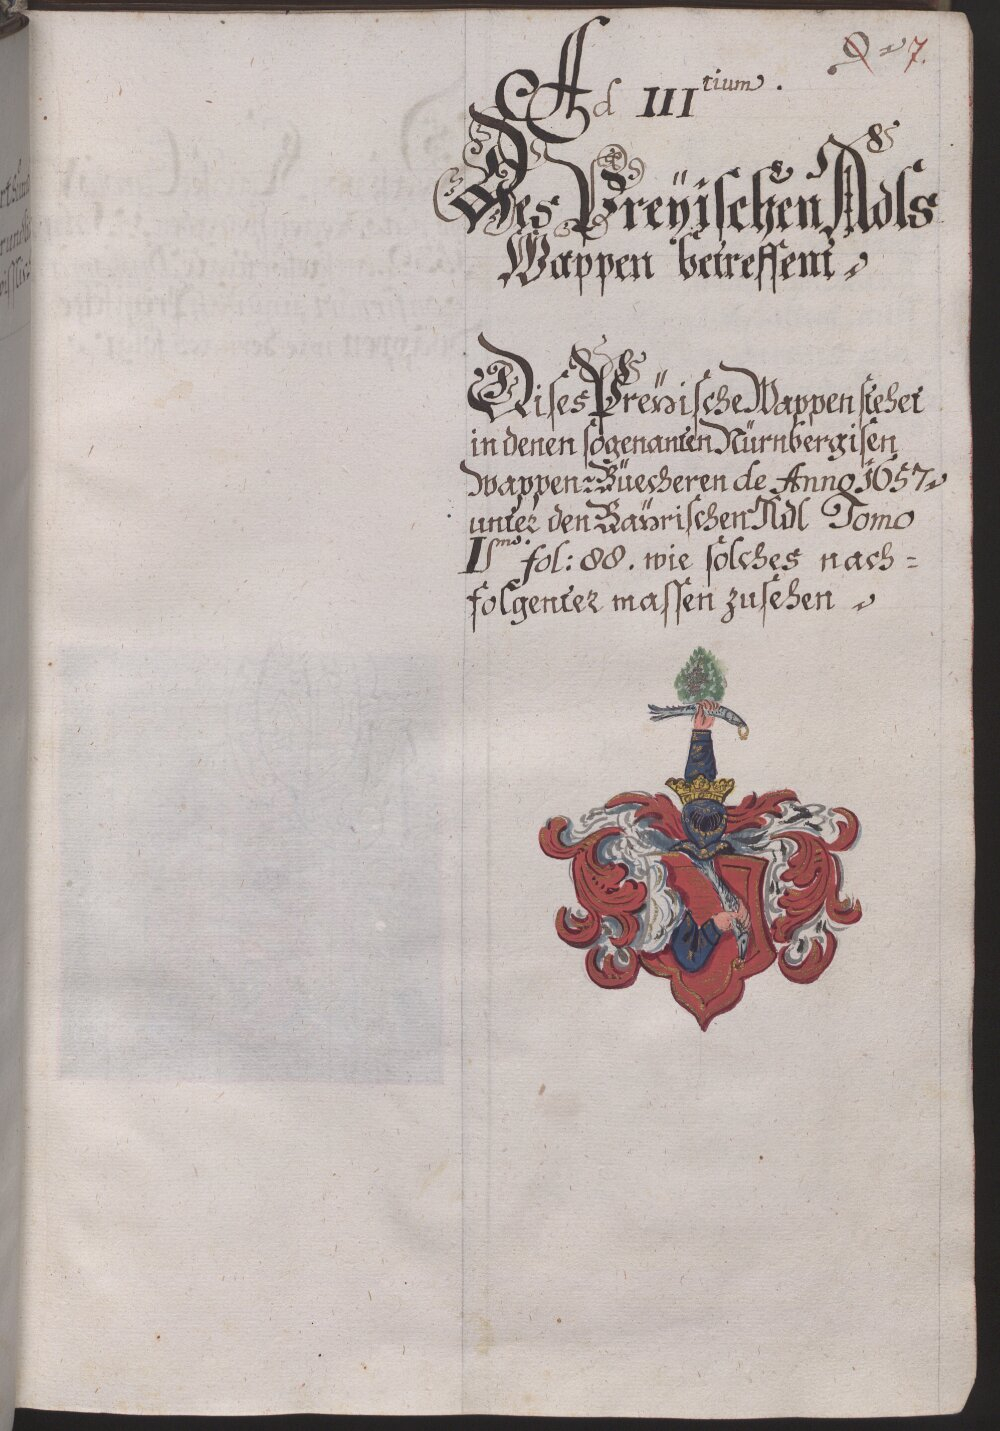 7.
Ad III tium.
Des Preÿischen Adls
Wappen betreffent
Dises Preÿische Wappen stehet
in denen sogenanten Nürnbergisen
Wappen-Büecheren de Anno 1657
unter den Baÿrischen Adl Tomo
I mo. fol: 88. wie solches nach=
folgenter massen zusehen